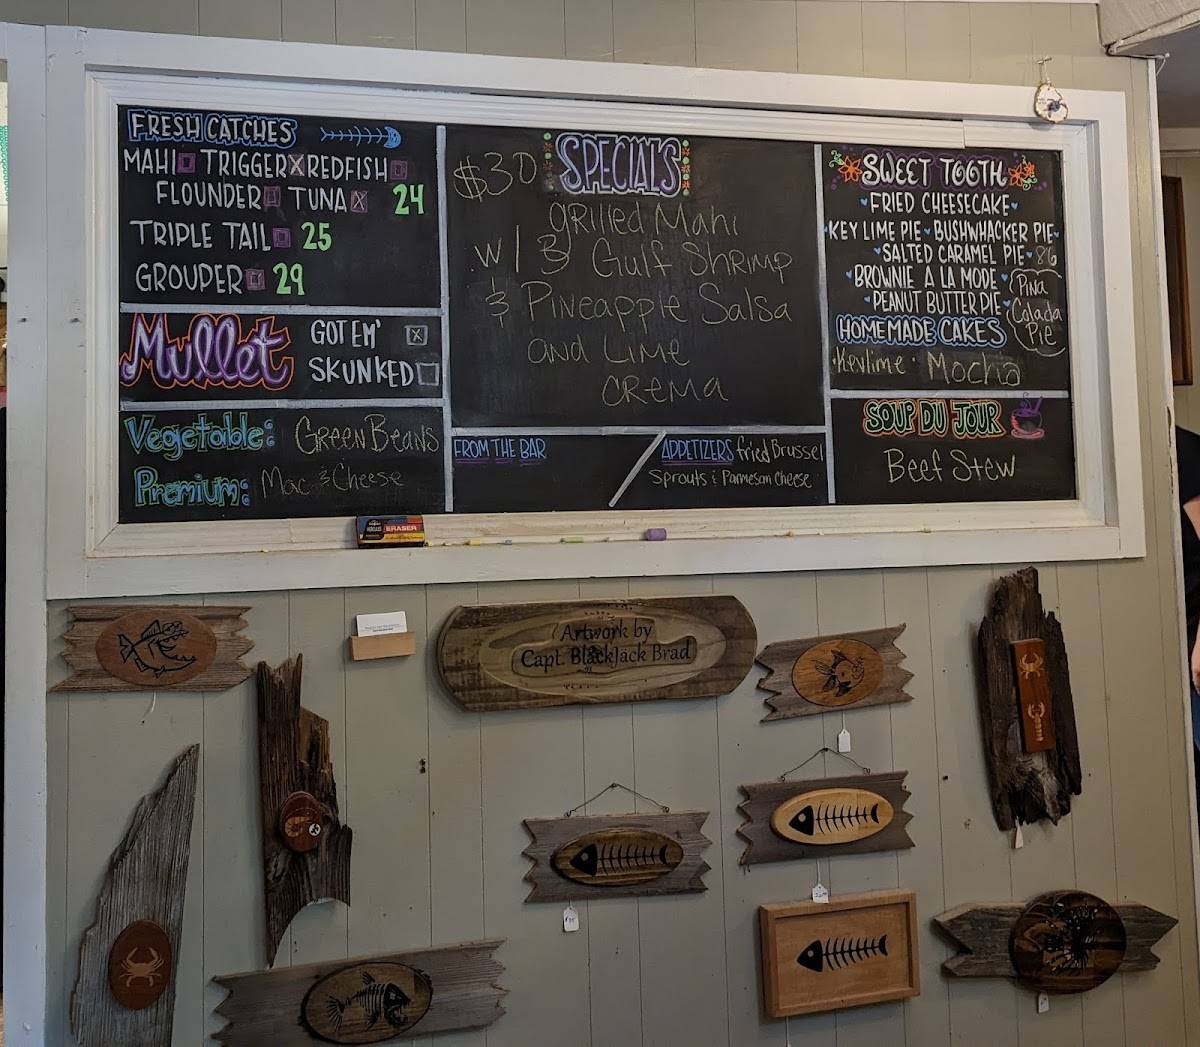 FRESH CATCHES
MAHI TRIGGER X REDFISH
FLOUNDER TUNA X 24
TRIPLE TAIL 25
GROUPER 29
Mullet
GOT EM' X
SKUNKED
Vegetable: Green Beans
Premium: Mac & Cheese
$30 SPECIALS
Grilled Mahi
w/ 3 Gulf Shrimp
& Pineapple Salsa
and Lime
Crema
FROM THE BAR
APPETIZERS Fried Brussel
Sprouts & Parmesan Cheese
SWEET TOOTH
FRIED CHEESECAKE
KEY LIME PIE BUSHWHACKER PIE
SALTED CARAMEL PIE 86
BROWNIE A LA MODE
PEANUT BUTTER PIE
Pina
Colada
Pie
HOMEMADE CAKES
Keylime Mocha
SOUP DU JOUR
Beef Stew
ERASER
Artwork by
Capt. BlackJack Brad